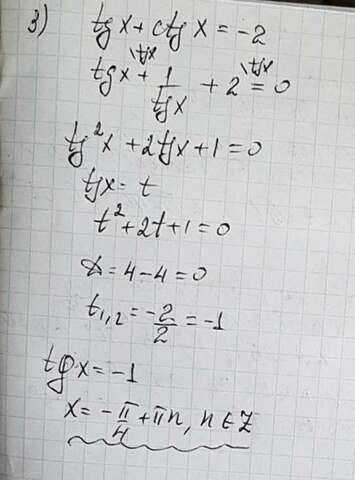 3) tgx + ctgx = -2
tgx + \tgx 1/tgx + 2 \tgx = 0
tg²x + 2tgx + 1 = 0
tgx = t
t² + 2t + 1 = 0
D = 4 - 4 = 0
t₁,₂ = -2/2 = -1
tgx = -1
x = -π/4 + πn, n ∈ Z